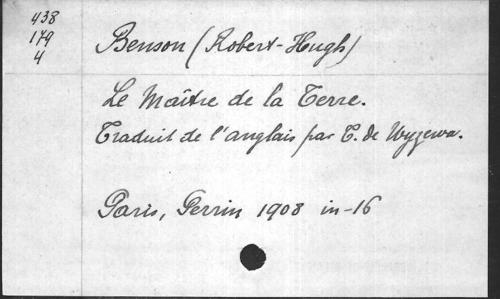 438
179
4
Benson (Robert-Hugh)
Le Maître de la Terre.
Traduit de l'anglais par T. de Wyzewa.
Paris, Perrin 1908 in-16